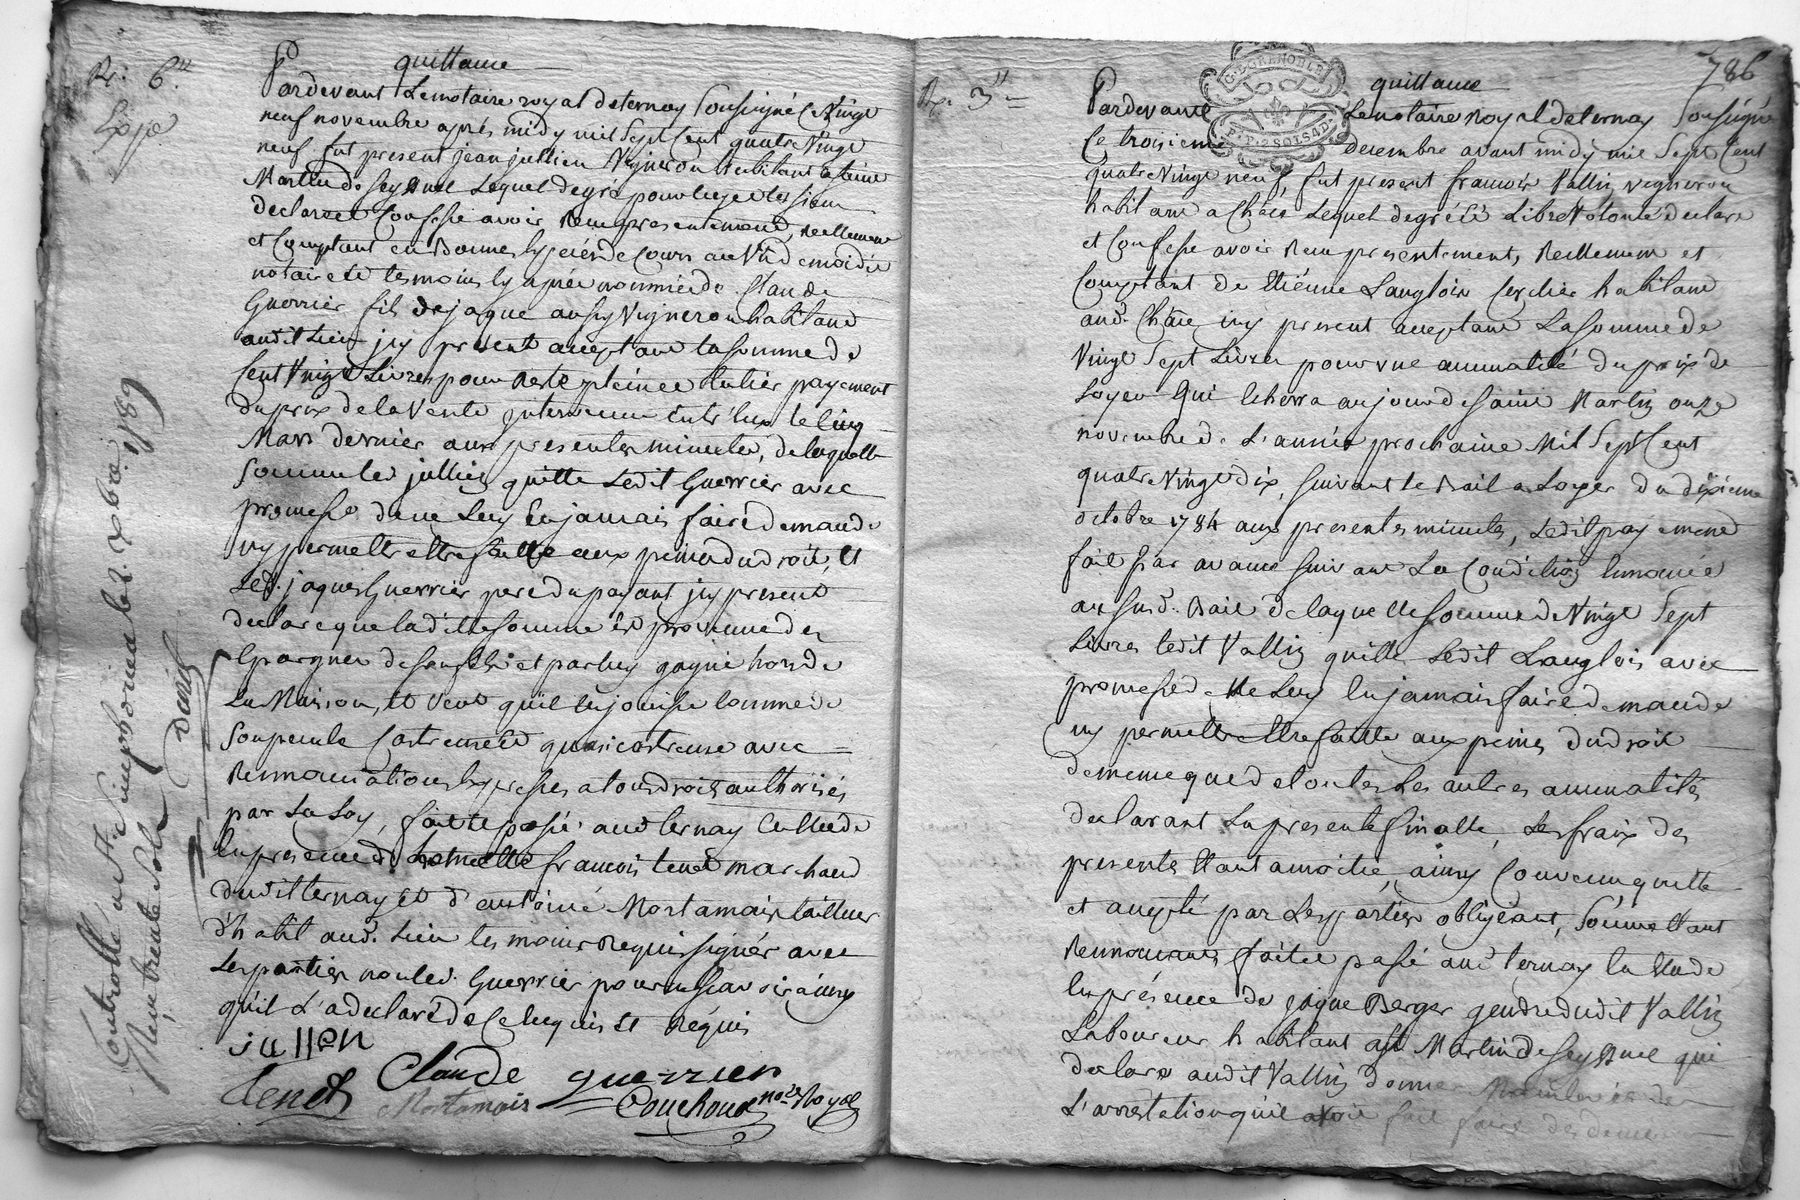 R: 6lt
Exp.e
quittance
Pardevant Le notaire royal de ternay Soussigné Ce Vingt
neuf novembre après midy mil Sept Cent quatre Vingt
neuf fut present jean jullien Vigneron habitant a saint
Martin de Seyssuel Lequel de gré pour luy et les siens
declare et Confesse avoir Reçu presentement, Reellement
et Comptant en Bonnes Especes de Cours au Vû de moidit
notaire et temoins Cy après nommés de Claude
Guerrier fils de jaque aussy Vigneron habitant
audit Lieu icy present acceptant la somme de
Cent Vingt Livres pour Reste pleine et Entier payement
du prix de la Vente intervenue Entr'Eux le Cinq
Mars dernier aux presentes minutes, de laquelle
Somme led. jullien quitte Ledit Guerrier avec
promesse de ne Luy En jamais faire demande
ny permettre Etre faitte aux peines du droit, Et
Led. jaques Guerrier pere du payant icy present
declare que ladite Somme Est provenue des
Epargnes de son fils et par luy gagné hors de
La Maison, Et Veut qu'il En jouisse Comme de
Son pecule Castrense Et quasi castrense avec
Renonciation Expresse a tous droits authorisés
par La Loy, fait et passé audt ternay Etude
En presence de françois tenet marchand
dudit ternay Et d'antoine Mortamais tailleur
d'habit aud. Lieu temoins Requis signés avec
Les parties non led. Guerrier pour ne sçavoir ainsy
qu'il L'a declaré de Ce Enquis Et Requis
jullien
Claude guerrier
tenet Mortamais Couchoud no.re Royal
Controllé a St Simphorien le 2. Xbre 1789
Reçu trente Sols
R. 3lt
786
G. DE GRENOBLE
P.P. 2 SOLS 4 D.
quittance
Pardevant Le notaire royal de ternay Soussigné
Ce troisieme decembre avant midy mil Sept Cent
quatre Vingt neuf, fut present francois Vallin vigneron
habitant a Lequel de gré Et Libre Volonté declare
et Confesse avoir Reçu presentement, Reellement et
Comptant de Etiènne Langlois habitant
aud. icy present acceptant La somme de
Vingt Sept Livres pour une annualité du prix de
Loyer qui Echerra au jour de saint Martin onze
novembre de L'année prochaine Mil Sept Cent
quatre Vingt dix, suivant le Bail a Loyer du dixieme
octobre 1784 aux presentes minutes, Ledit payement
fait par avance suivant La Condition Enoncée
au susd. Bail de laquelle somme de Vingt Sept
Livres ledit Vallin quitte Ledit Langlois avec
promesse de ne Luy En jamais faire demande
ny permettre Etre faitte aux peines du droit
de meme que de toutes Les autres annualités
declarant La presente finalle, Les fraix des
presentes Etant a moitié, ainsy Convenu quitté
et accepté par Les parties obligeant, Soumettant
Renonçant, fait et passé aud ternay En Etude
En présence de jaque Berger gendre dudit Vallin
Laboureur habitant a St Martin de Seyssuel qui
declare audit Vallin donner
L'arrestation qu'il avoit fait faire